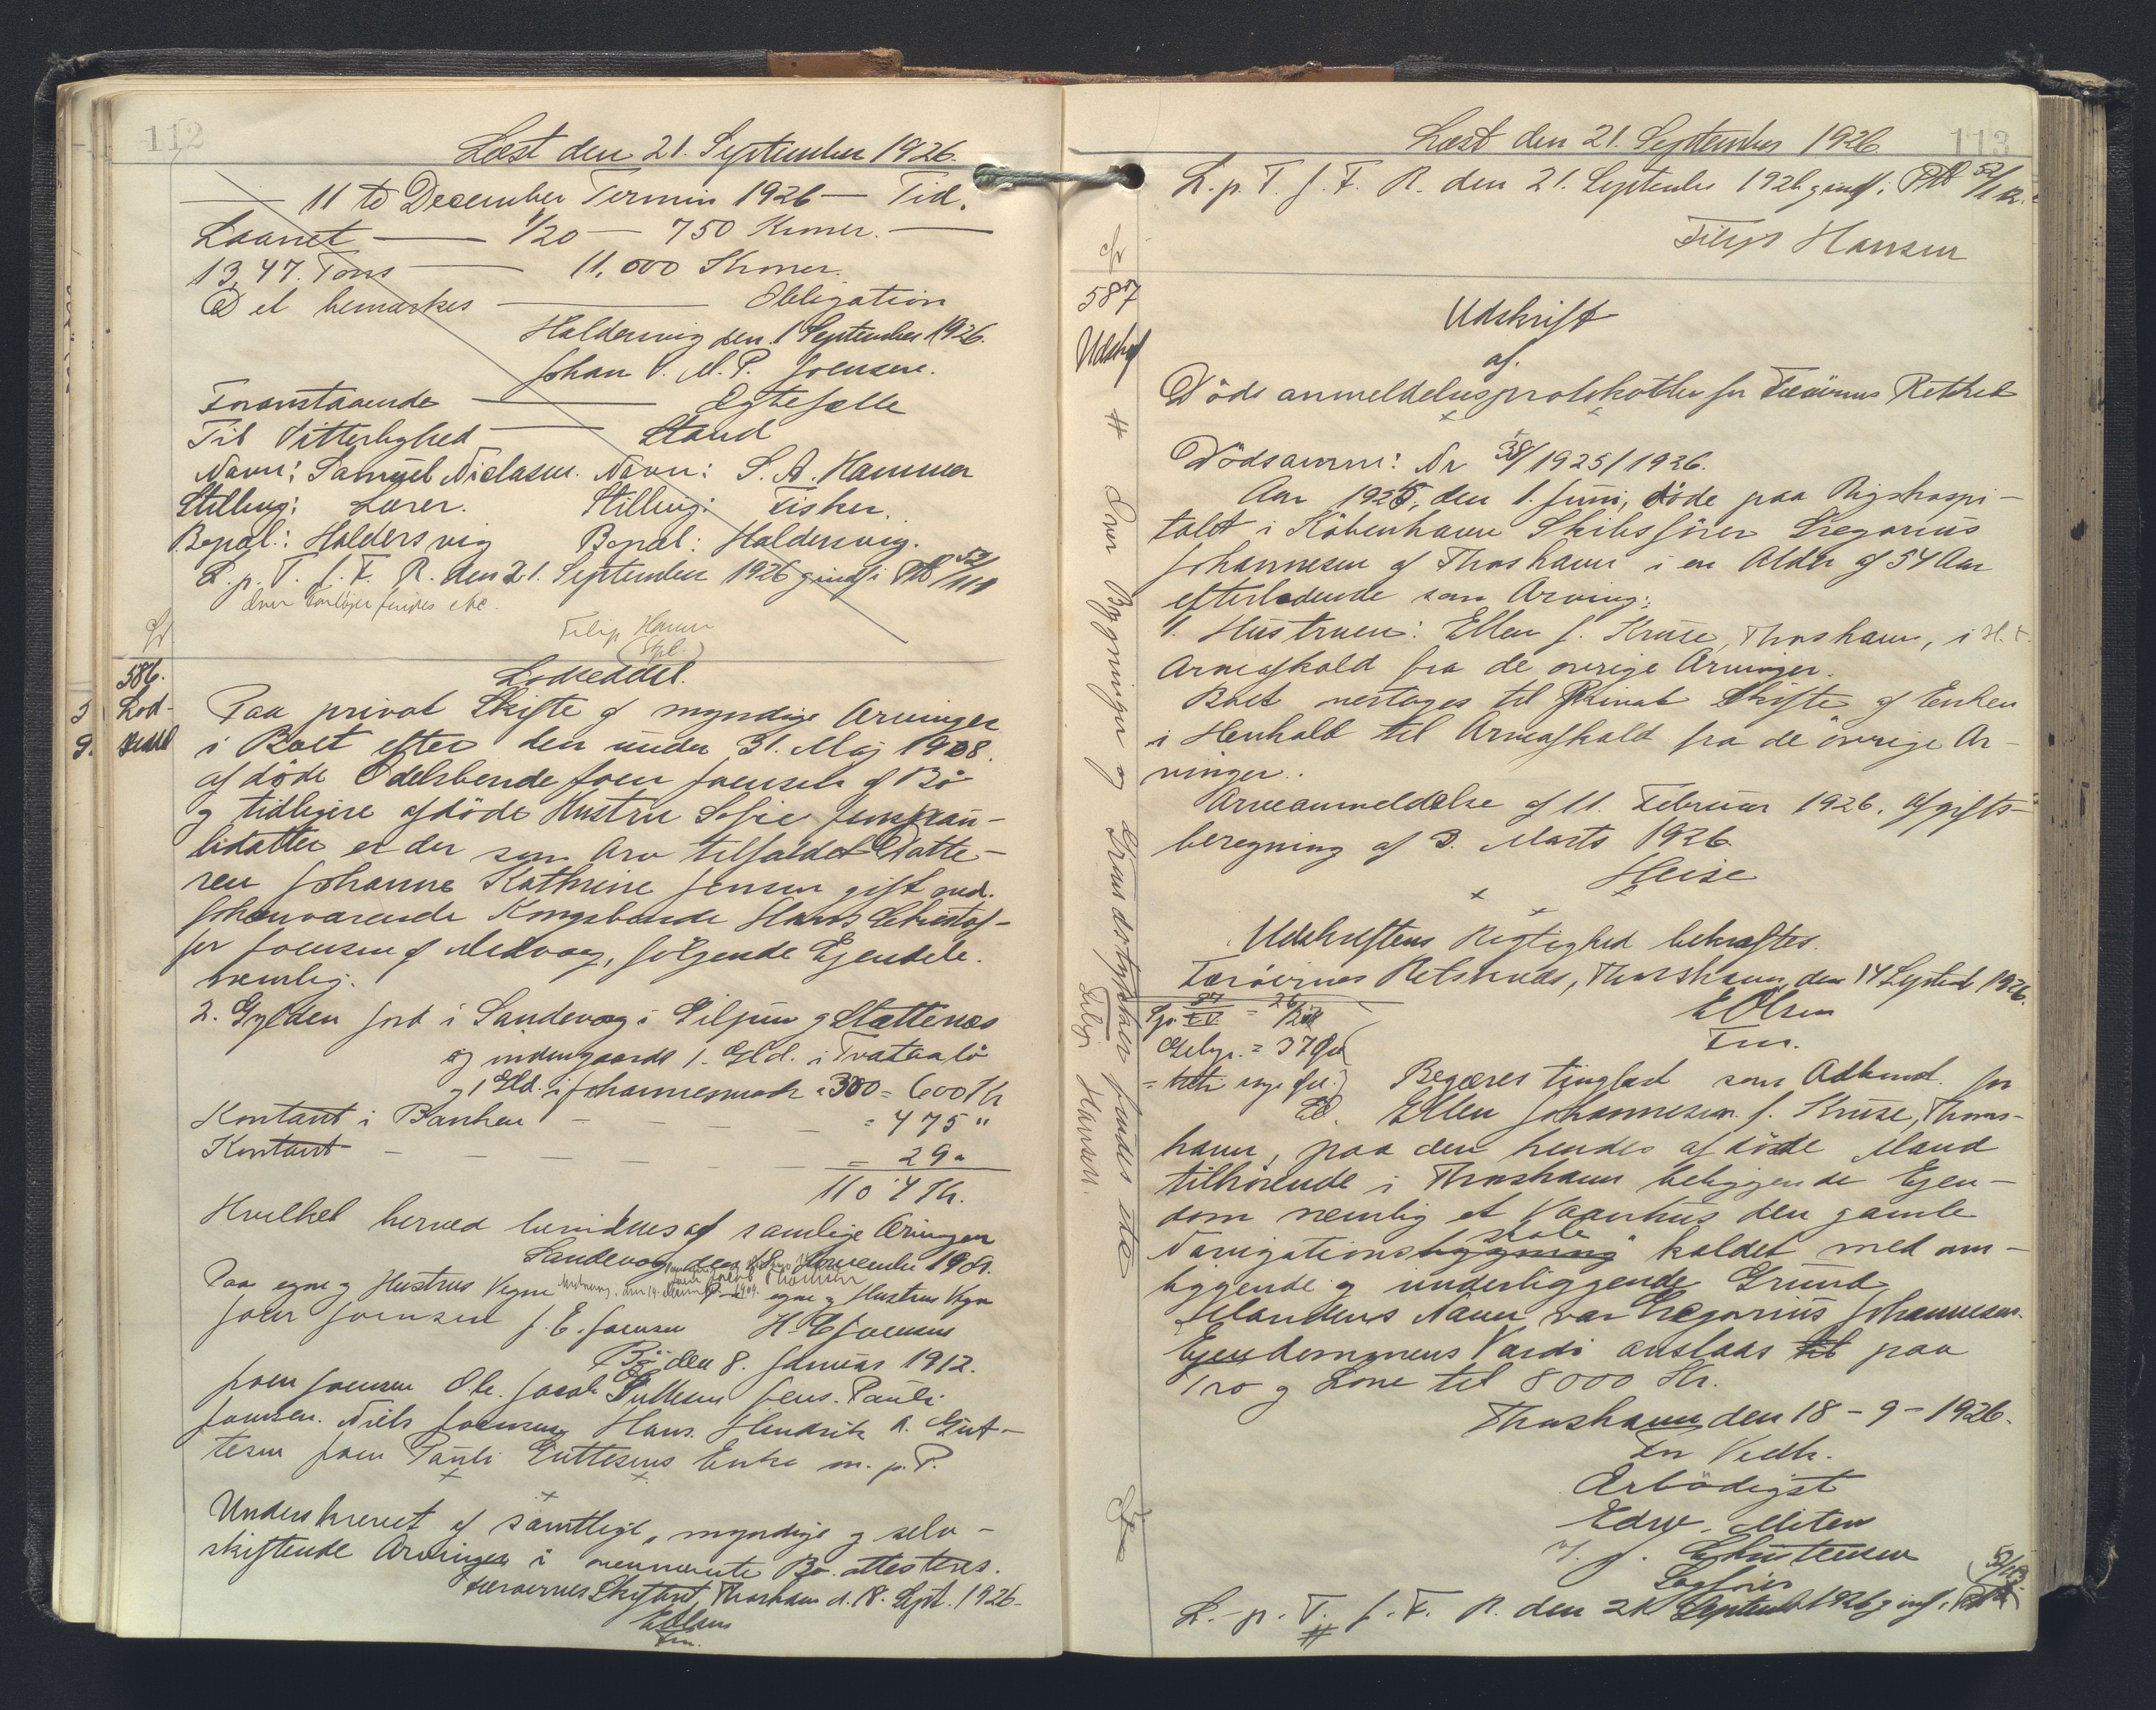 112
Læst den 21. September 1926.
11 te December Termin 1926 — Tid.
Laanet — 1/20 — 750 Kroner. —
13,47. Tons — 11,000 Kroner.
Det bemærkes — Obligation
Haldersvig den 1 September 1926.
Johan P. M. P. Joensen.
Foranstaaende — Ægtefælle
Til Vitterlighed — Stand
Navn: Samuel Niclasen. Navn: S. A. Hammer
Stilling: Lærer. Stilling: Fisker.
Bopæl: Haldersvig Bopæl: Haldersvig.
L. p. T. f. F. R. den 21. September 1926 g indf i PB 52/111
Filip Hansen
586.
Lod-
seddel
Lodseddel.
Paa privat Skifte af myndige Arvinger
i Boet efter den under 31. Maj 1908.
afdöde Odelsbonde Joen Joensen af Bö
og tidligere afdöde Hustru Sofie Jenspau-
lidatter er der som Arv tilfaldet Datte-
ren Johanne Kathrine Jensen gift med.
forhenværende Kongsbonde Hans Christof-
fer Joensen af Midvaag, fölgende Ejendele.
nemlig.
2. Gylden Jord i Sandevaag i Giljum og Stættenæs
og indengaards 1. Gld. i Trætaalö
og 1 Gld. i Johannesmark a 300 = 600 Kr
Kontant i Banken — — — = 475 "
Kontant — — — — — = 29 "
1104 Kr.
Hvilket herved bevidnes af samlige Arvinger
Sandevaag den 18. November 1908.
Paa egne og Hustrus Vegne Paa egne og Hustrus Vegne
Joen Joensen J. E. Joensen H. C. Joensen
Bö den 8. Januar 1912.
Joen Joensen Ole Jacob Joens. Pauli
Joensen. Niels Joensen Hans Hendrik A. Gut-
tesen Joen Pauli Guttesens Enke m. p. P.
Underskrevet af samtlige, myndige og selv-
skiftende Arvinger i nævnte Bo. attesteres.
Færöernes Skifteret, Thorshavn d. 18. Sept. 1926.
EOlsen
Fm.
113
Læst den 21. September 1926
L. p. T. f. F. R. den 21. September 1926 g indf. i PB 52/112.
Filip Hansen
587
Udskrif
Udskrift
af.
Dödsanmeldelsesprotokollen for Færöernes Retskred
Dödsanm: Nr 38/1925/1926.
Aar 1925, den 1. Juni, döde paa Rigshospi-
talet i Köbenhavn Skibsförer Gregorius
Johannesen af Thorshavn i en Alder af 54 Aar
efterladende som Arving:
1. Hustruen: Ellen f. Kruse, Thorshavn, i H. t.
Arveafkald fra de övrige Arvinger.
Boet modtages til Privat Skifte af Enken
i Henhold til Arveafkald fra de övrige Ar-
vinger.
Arveanmeldelse af 11. Februar 1926. Afgifts-
beregning af 3. Marts 1926.
Heise
Udskriftens Rigtighed bekræftes.
Færöernes Retskreds, Thorshavn, den 14 Septemb 1926.
EOlsen
Fm.
Begæres tinglæst som Adkomst for
Ellen Johannesen f. Kruse, Thors-
havn, paa den hendes afdöde Mand
tilhörende i Thorshavn beliggende Ejen-
dom nemlig et Vaanhus den gamle
Navigationsbygning skole kaldet med om-
liggende og underliggende Grund
Mandens Navn var Gregorius Johannesen.
Ejendommens Værdi anslaas til paa
Tro og Love til 8000 Kr.
Thorshavn den 18 - 9 - 1926.
En Vedk.
Ærbödigst
Edw. Mitens
Sagförer
L. p. T. f. F. R. den 21 September 1926 g indf. i PB 52/113
Over Bygninger og Grundstykker findes ikke
Filip Hansen.